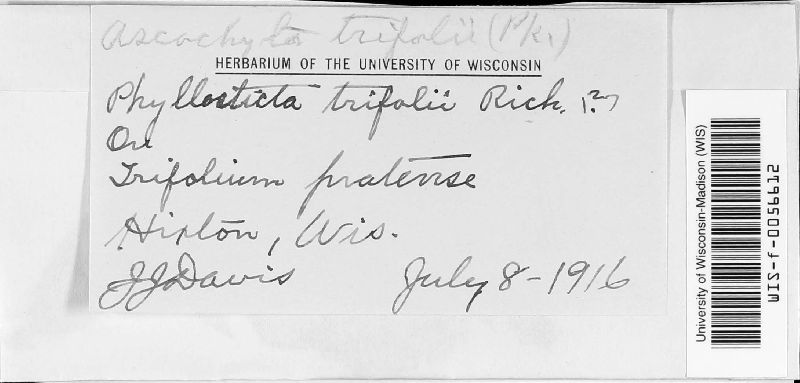 Ascochyta trifolii (Pk.)
HERBARIUM OF THE UNIVERSITY OF WISCONSIN
Phyllosticta trifolii Rich. (?)
On
Trifolium pratense
Hixton, Wis.
JJDavis July 8-1916
University of Wisconsin-Madison (WIS)
WIS-f-0056612